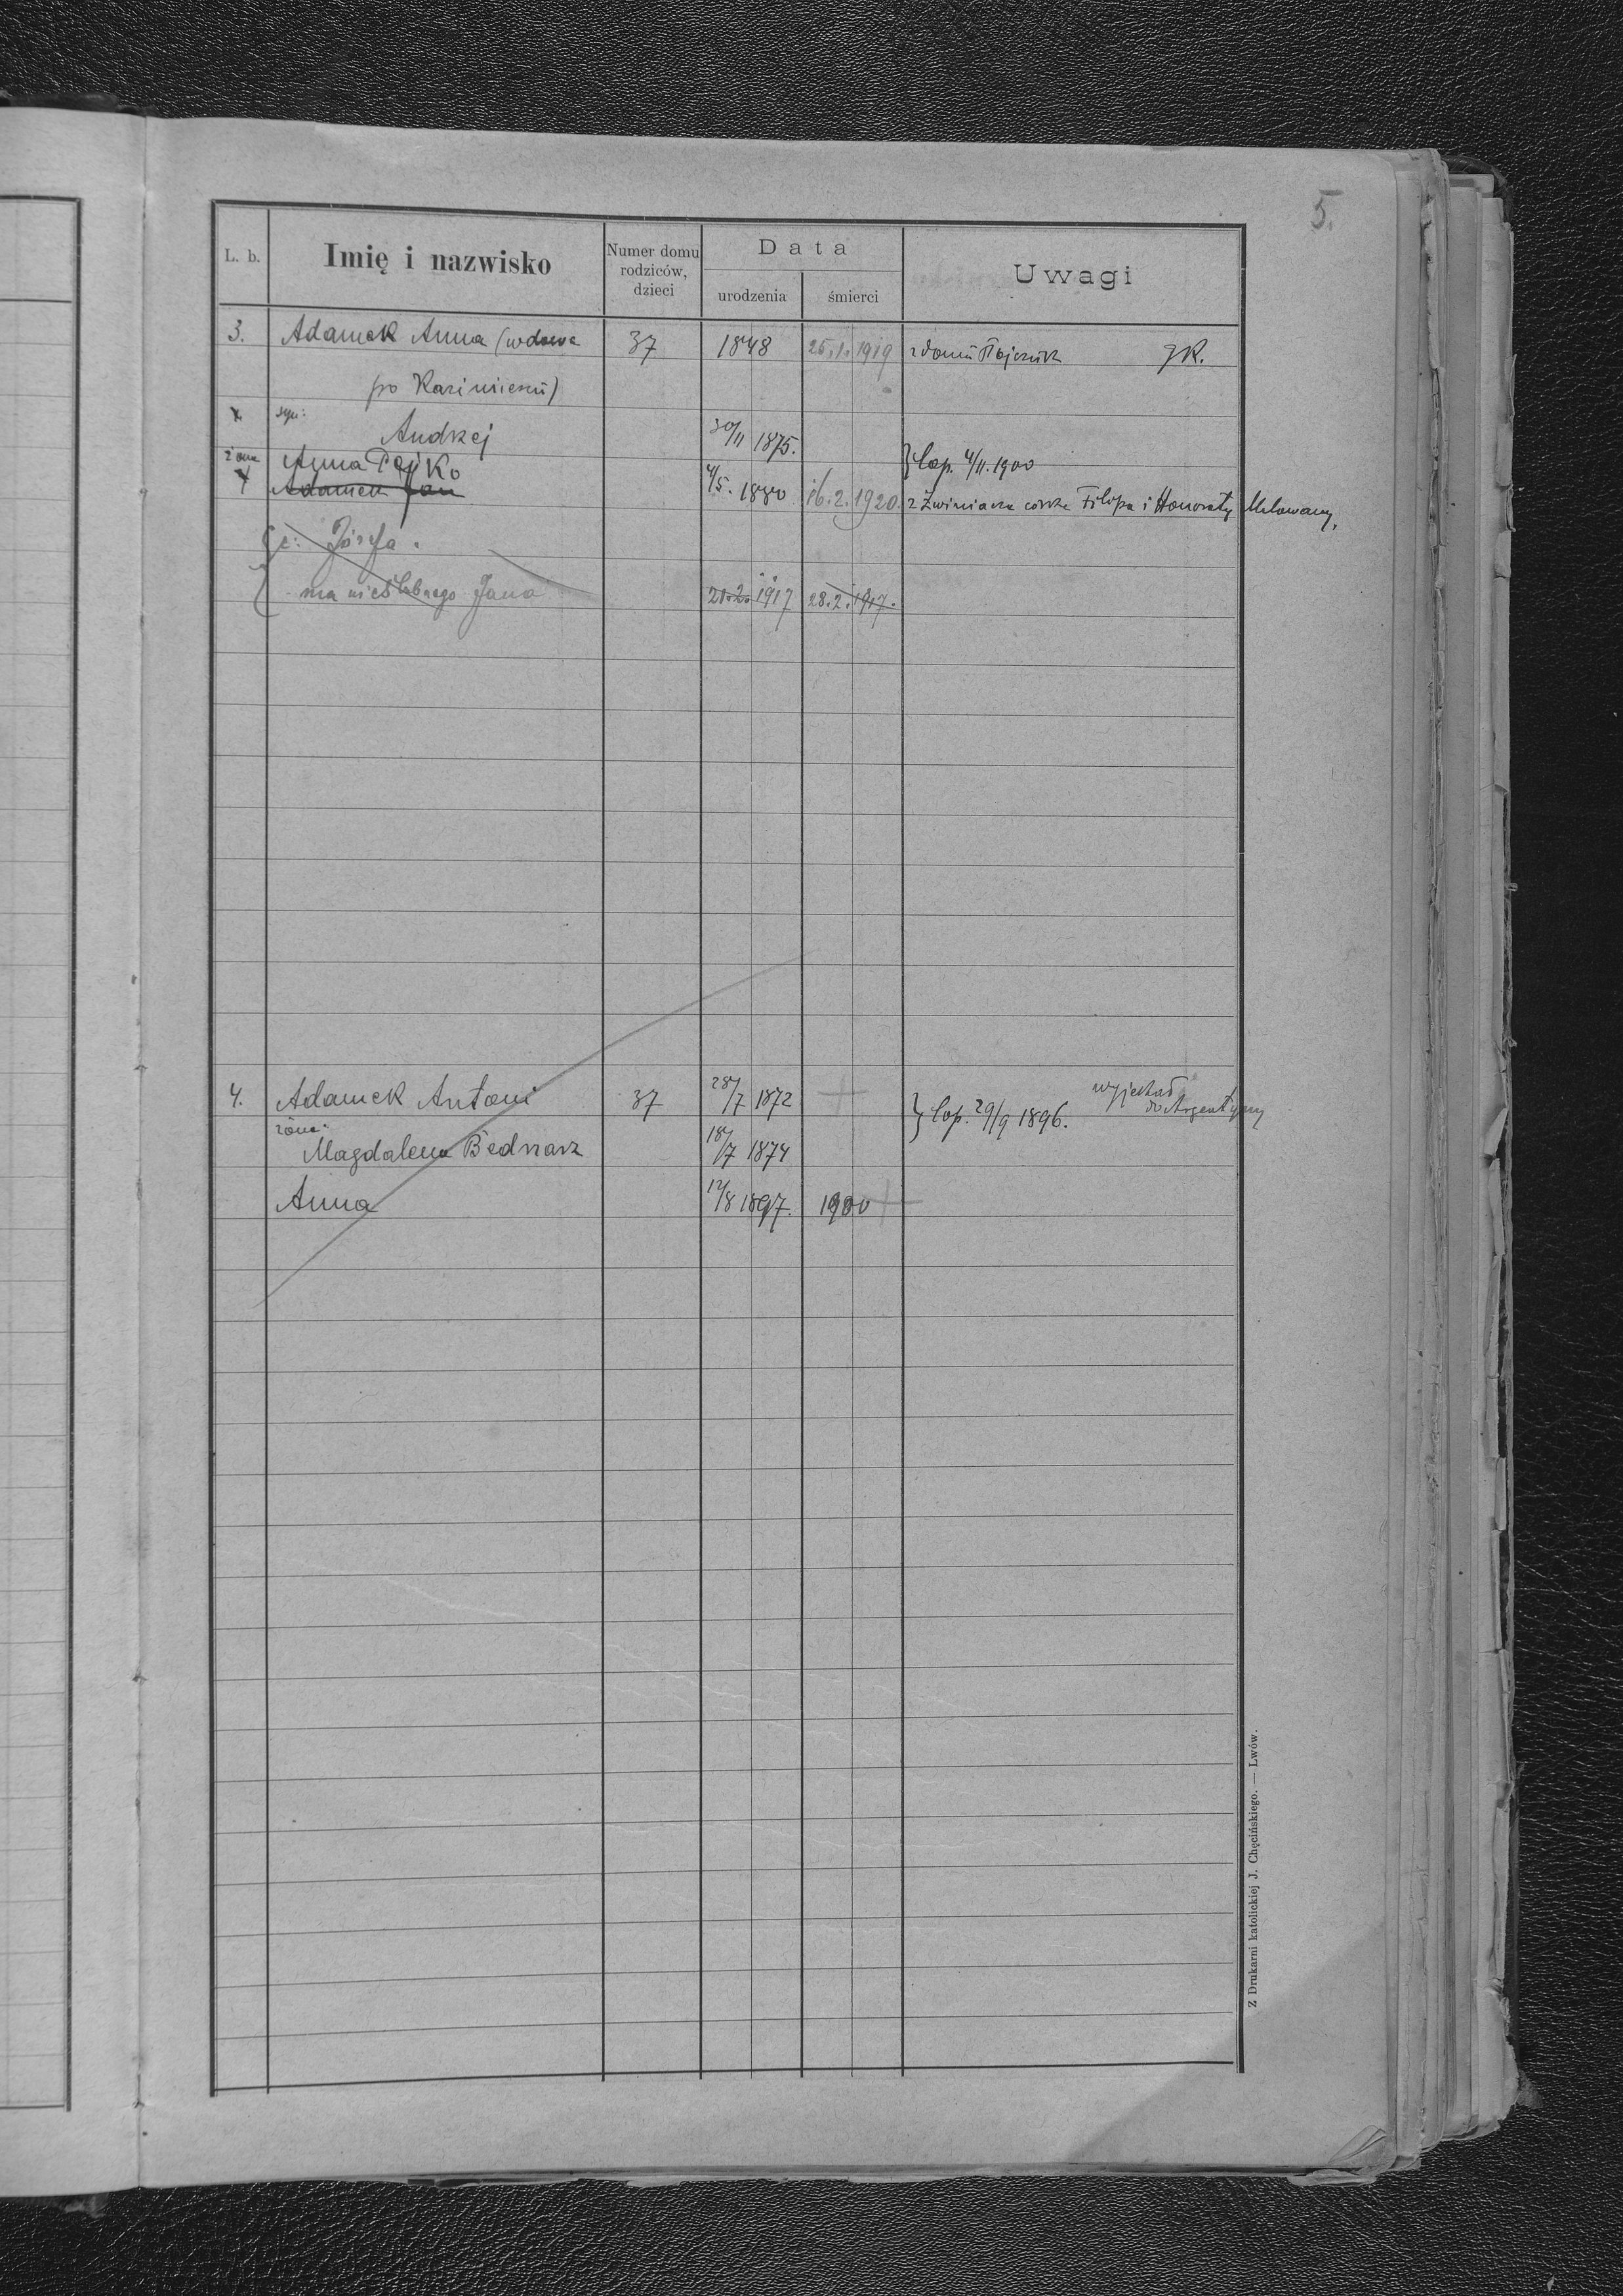 5.
L. b. Imię i nazwisko Numer domu rodziców, dzieci Data urodzenia śmierci Uwagi
3. Adamek Anna (wdowa 37 1848 25.1.1919 z domu gk.
po Kazimierzu)
x syn: Andrzej 30/11 1875.
żona Anna Pejko } cop. 4/11. 1900
x Adamek Jan 4/5. 1880 16.2.1920. z Żwiniacza córka Filipa i Honoraty
c: Józefa.
ma nieślubnego Jana 21.2. 1917 28.2.1917.
4. Adamek Antoni 37 28/7 1872 + } cop. 29/9 1896. wyjechał
do Argentyny
żona:
Magdalena Bednarz 18/7 1874
Anna 12/8 1897. 1900 +
Z Drukarni katolickiej J. Chęcińskiego. — Lwów.